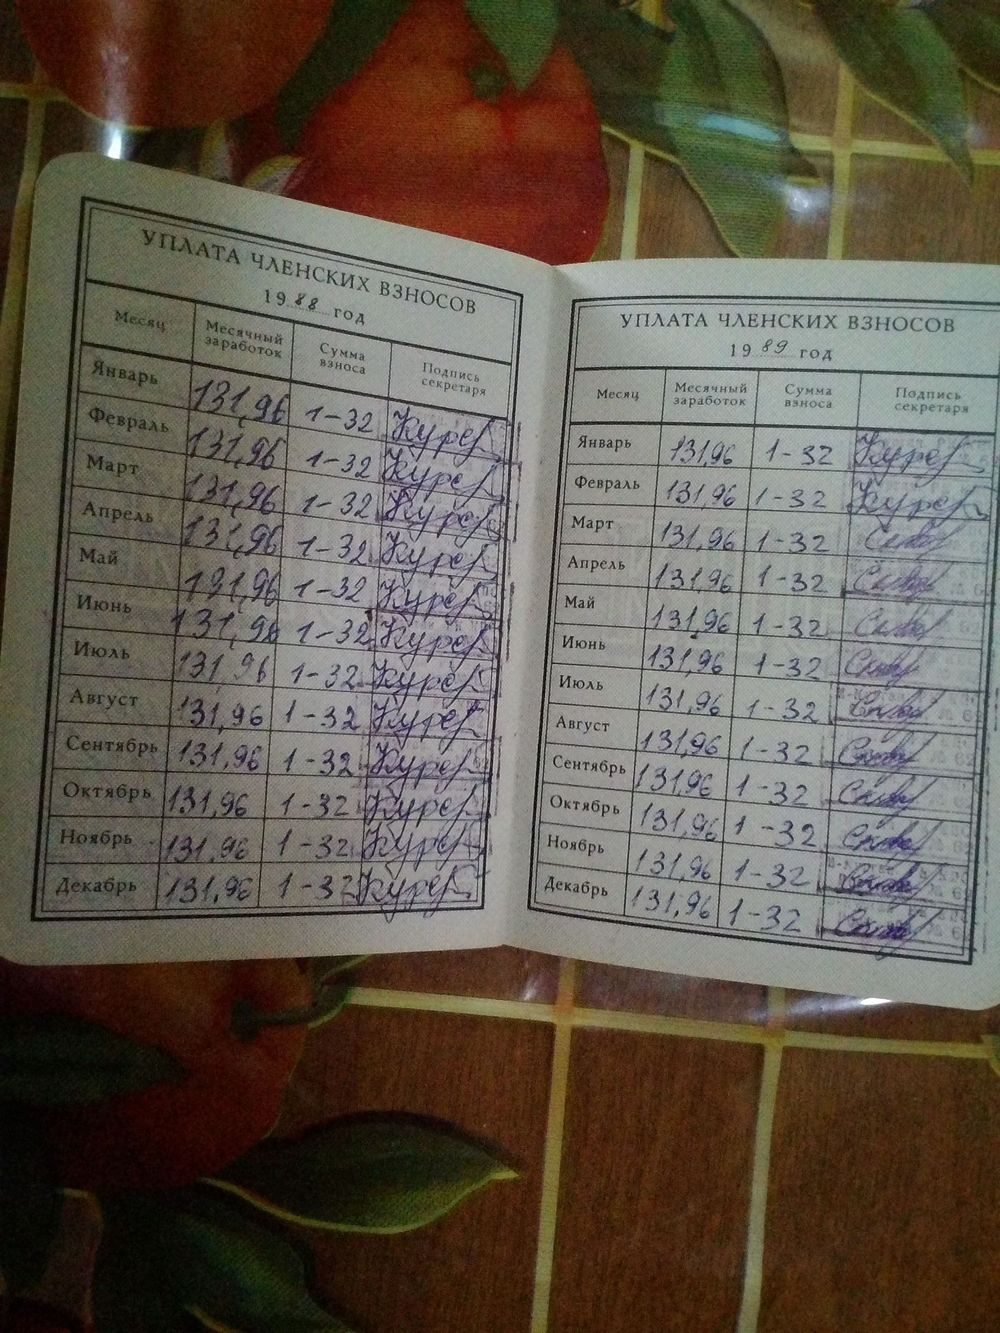 УПЛАТА ЧЛЕНСКИХ ВЗНОСОВ
1988 год
Месяц Месячный заработок Сумма взноса Подпись секретаря
Январь 131,96 1-32
Февраль 131,96 1-32
Март 131,96 1-32
Апрель 131,96 1-32
Май 191,96 1-32
Июнь 131,96 1-32
Июль 131,96 1-32
Август 131,96 1-32
Сентябрь 131,96 1-32
Октябрь 131,96 1-32
Ноябрь 131,96 1-32
Декабрь 131,96 1-32
УПЛАТА ЧЛЕНСКИХ ВЗНОСОВ
1989 год
Месяц Месячный заработок Сумма взноса Подпись секретаря
Январь 131,96 1-32
Февраль 131,96 1-32
Март 131,96 1-32
Апрель 131,96 1-32
Май 131,96 1-32
Июнь 131,96 1-32
Июль 131,96 1-32
Август 131,96 1-32
Сентябрь 131,96 1-32
Октябрь 131,96 1-32
Ноябрь 131,96 1-32
Декабрь 131,96 1-32